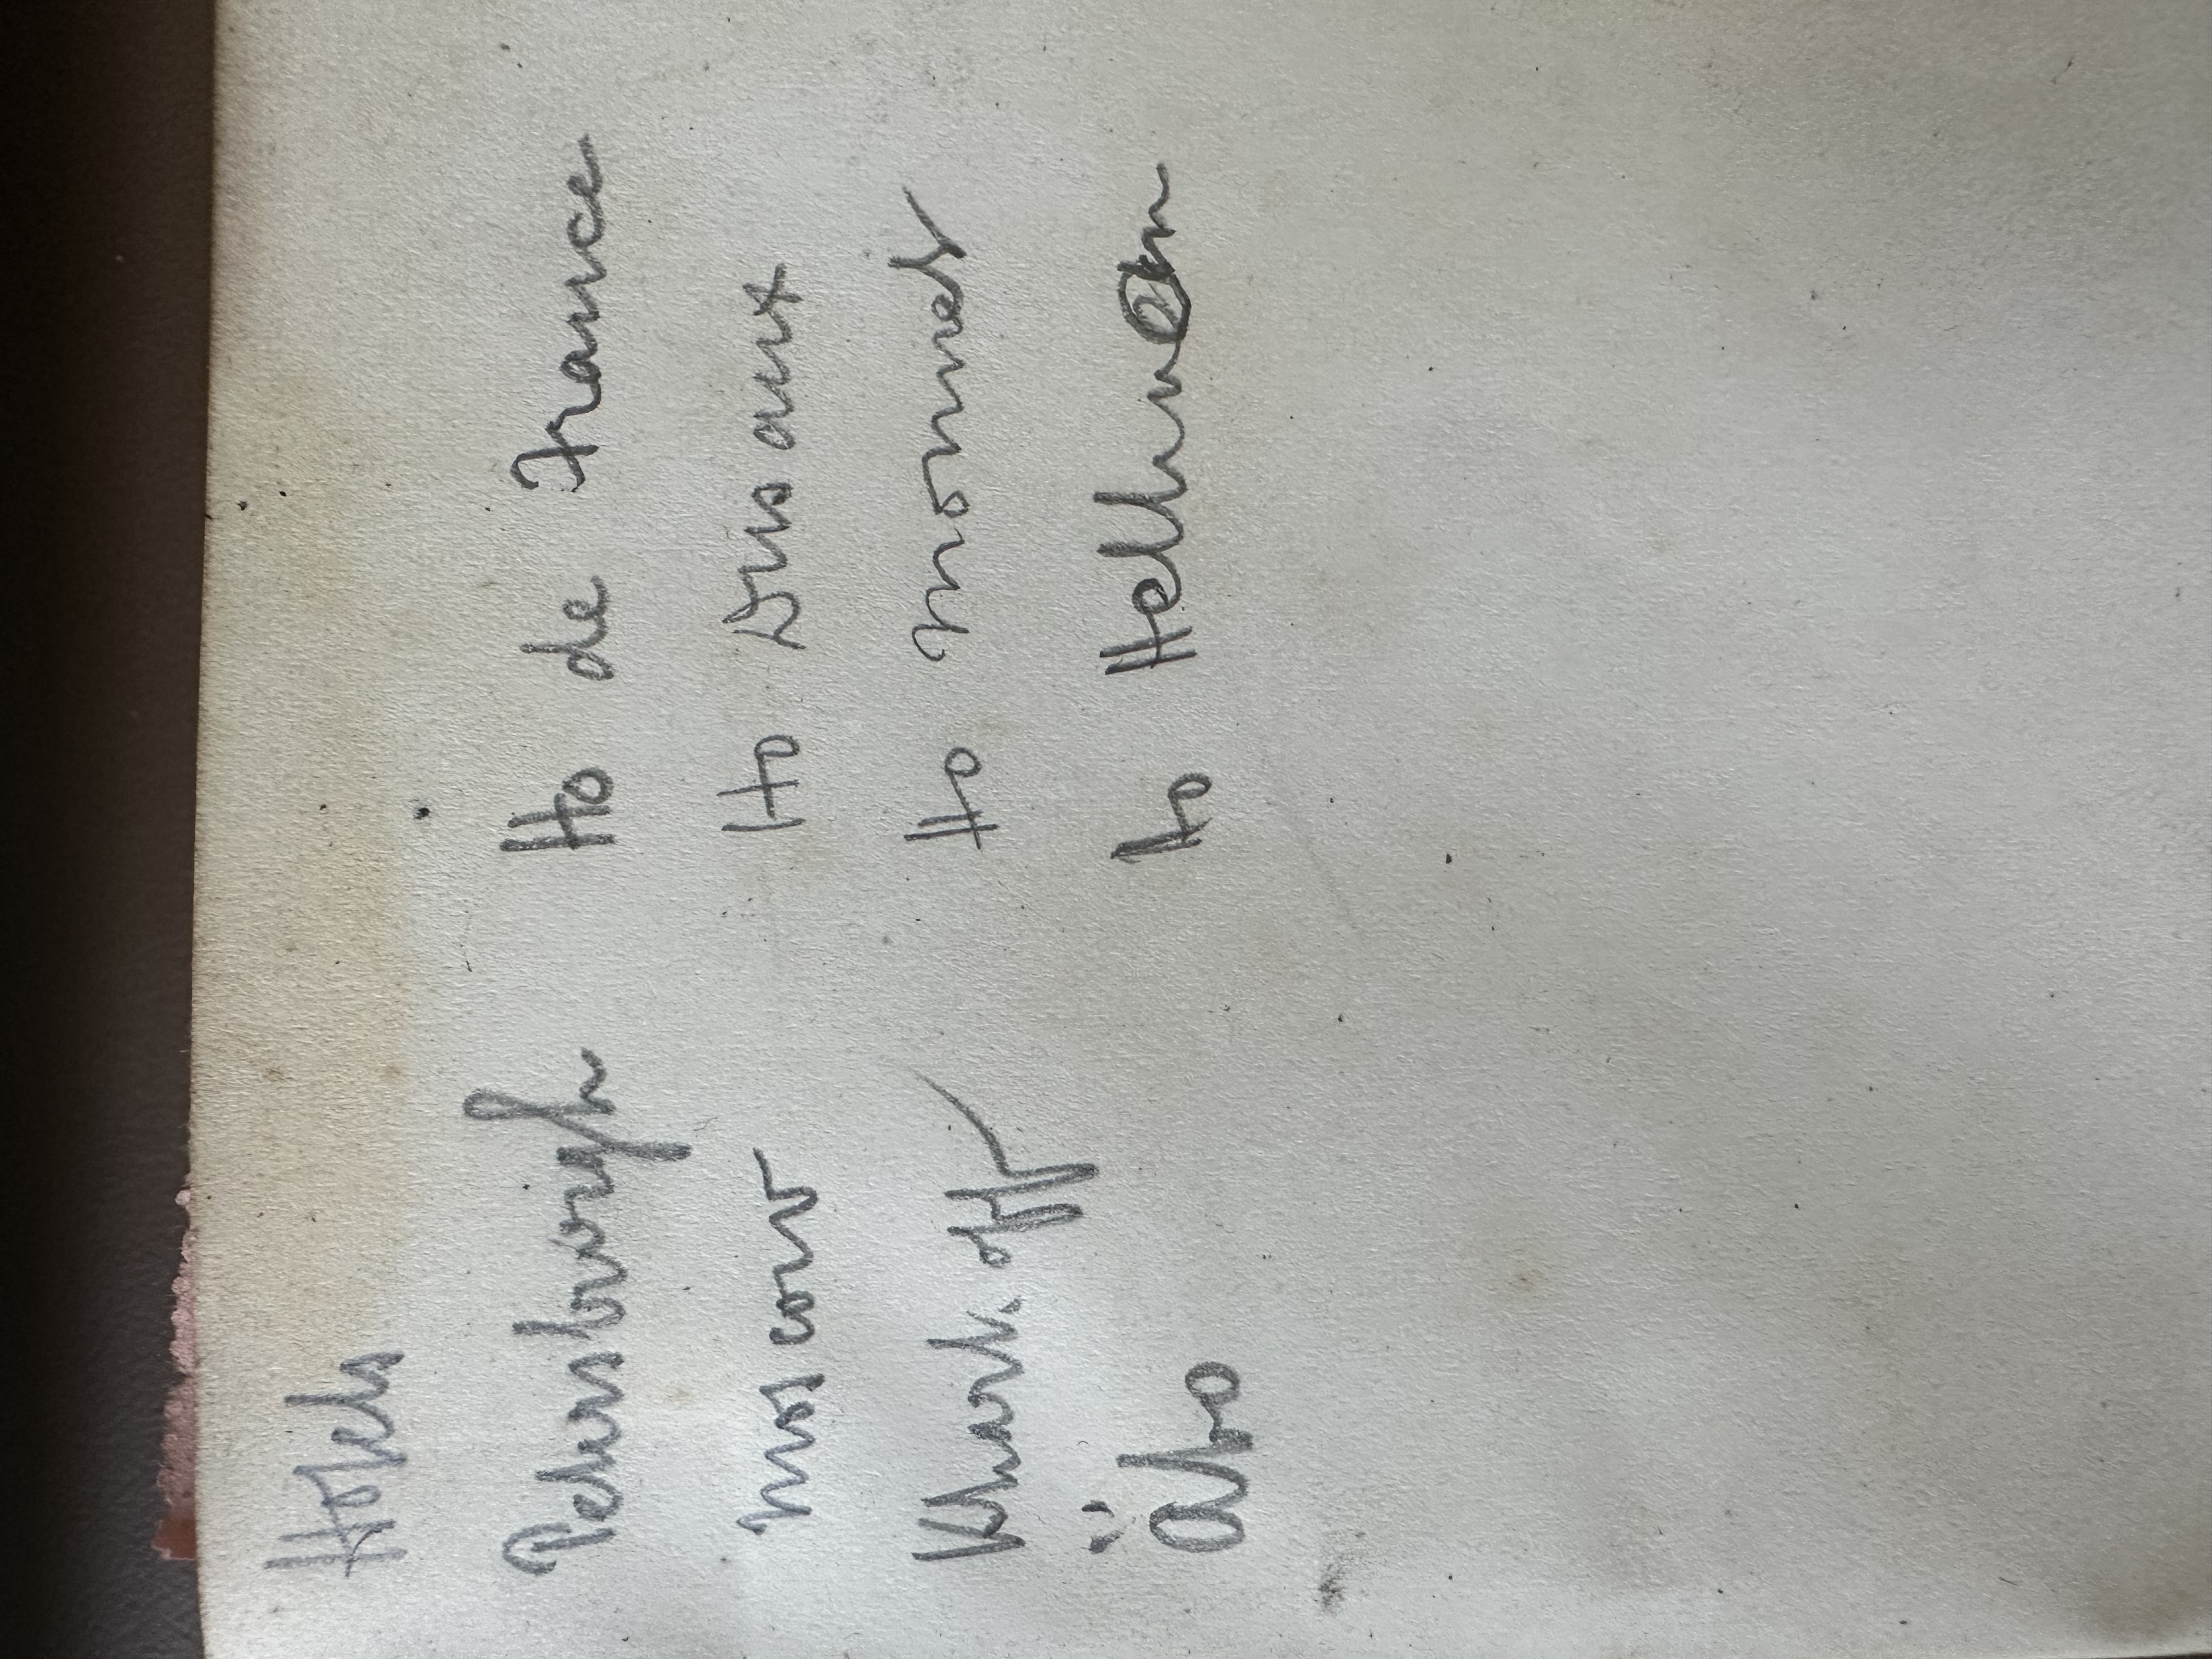 Hotels
Petersbourgh Ho de France
Moscow Ho Dusaux
Khark. off Ho Monnet
äbo Ho